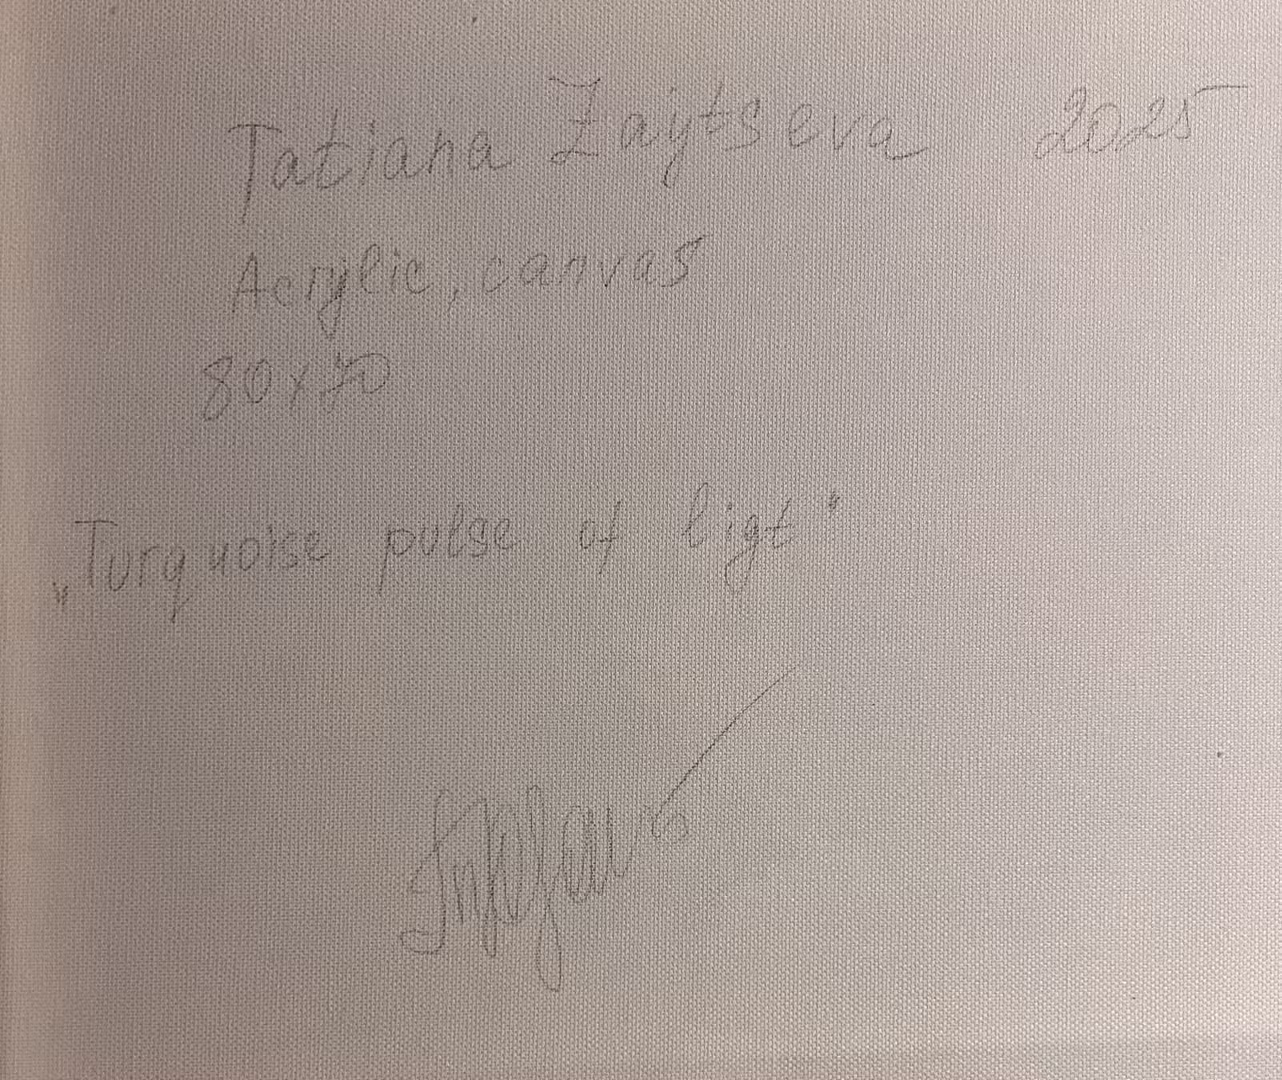 Tatiana Zaytseva 2025
Acrylic, canvas
80x70
„Turquoise pulse of ligt"